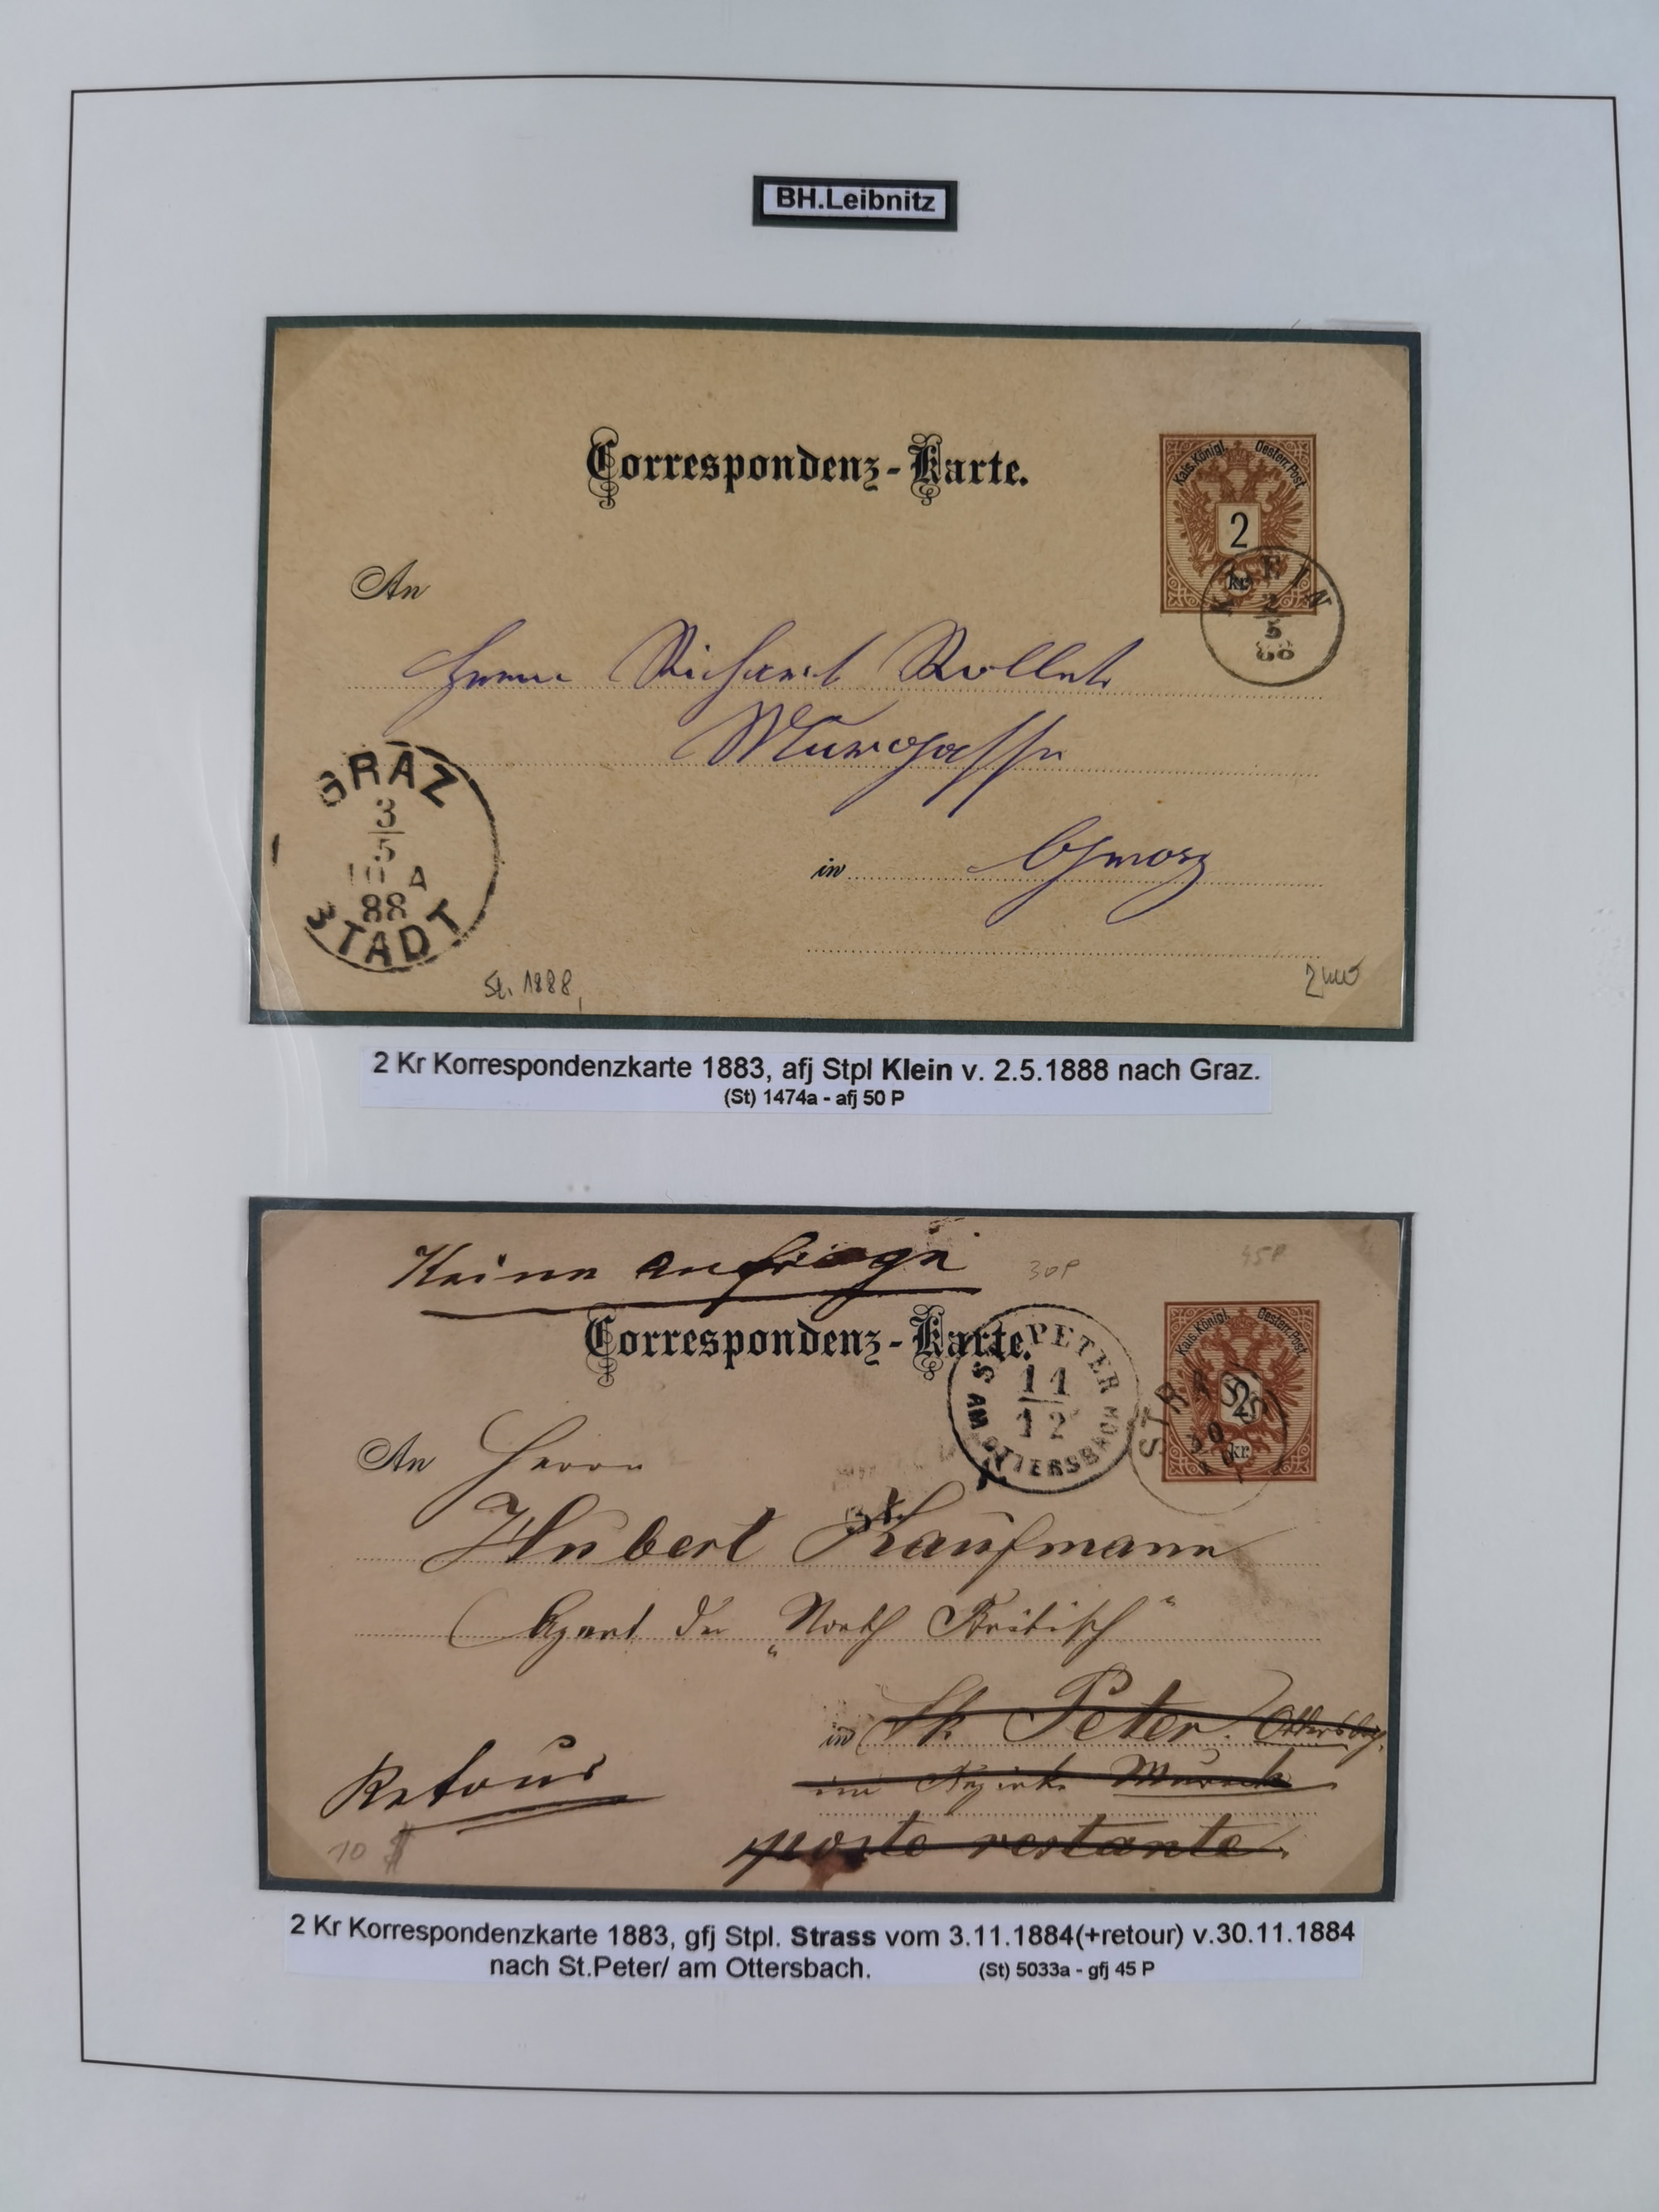 BH.Leibnitz
Correspondenz-Karte.
Kais. Königl. Oesterr. Post.
2
kr
KLEIN
2
5
88
An
Herrn Richard
Murgasse
in Graz
GRAZ
3
5
10 A
88
STADT
St. 1888
2 Kr Korrespondenzkarte 1883, afj Stpl Klein v. 2.5.1888 nach Graz.
(St) 1474a - afj 50 P
Keine Anfrage
30P
45P
Correspondenz-Karte.
Kais. Königl. Oesterr. Post.
2
kr.
ST. PETER
11
12
AM OTTERSBACH
STRASS
30
An Herrn
Hubert Kaufmann
Agent der „North Britisch"
in St. Peter Ottersbg.
im Bezirke Mureck
poste restante.
Retour
10
2 Kr Korrespondenzkarte 1883, gfj Stpl. Strass vom 3.11.1884(+retour) v.30.11.1884
nach St.Peter/ am Ottersbach. (St) 5033a - gfj 45 P